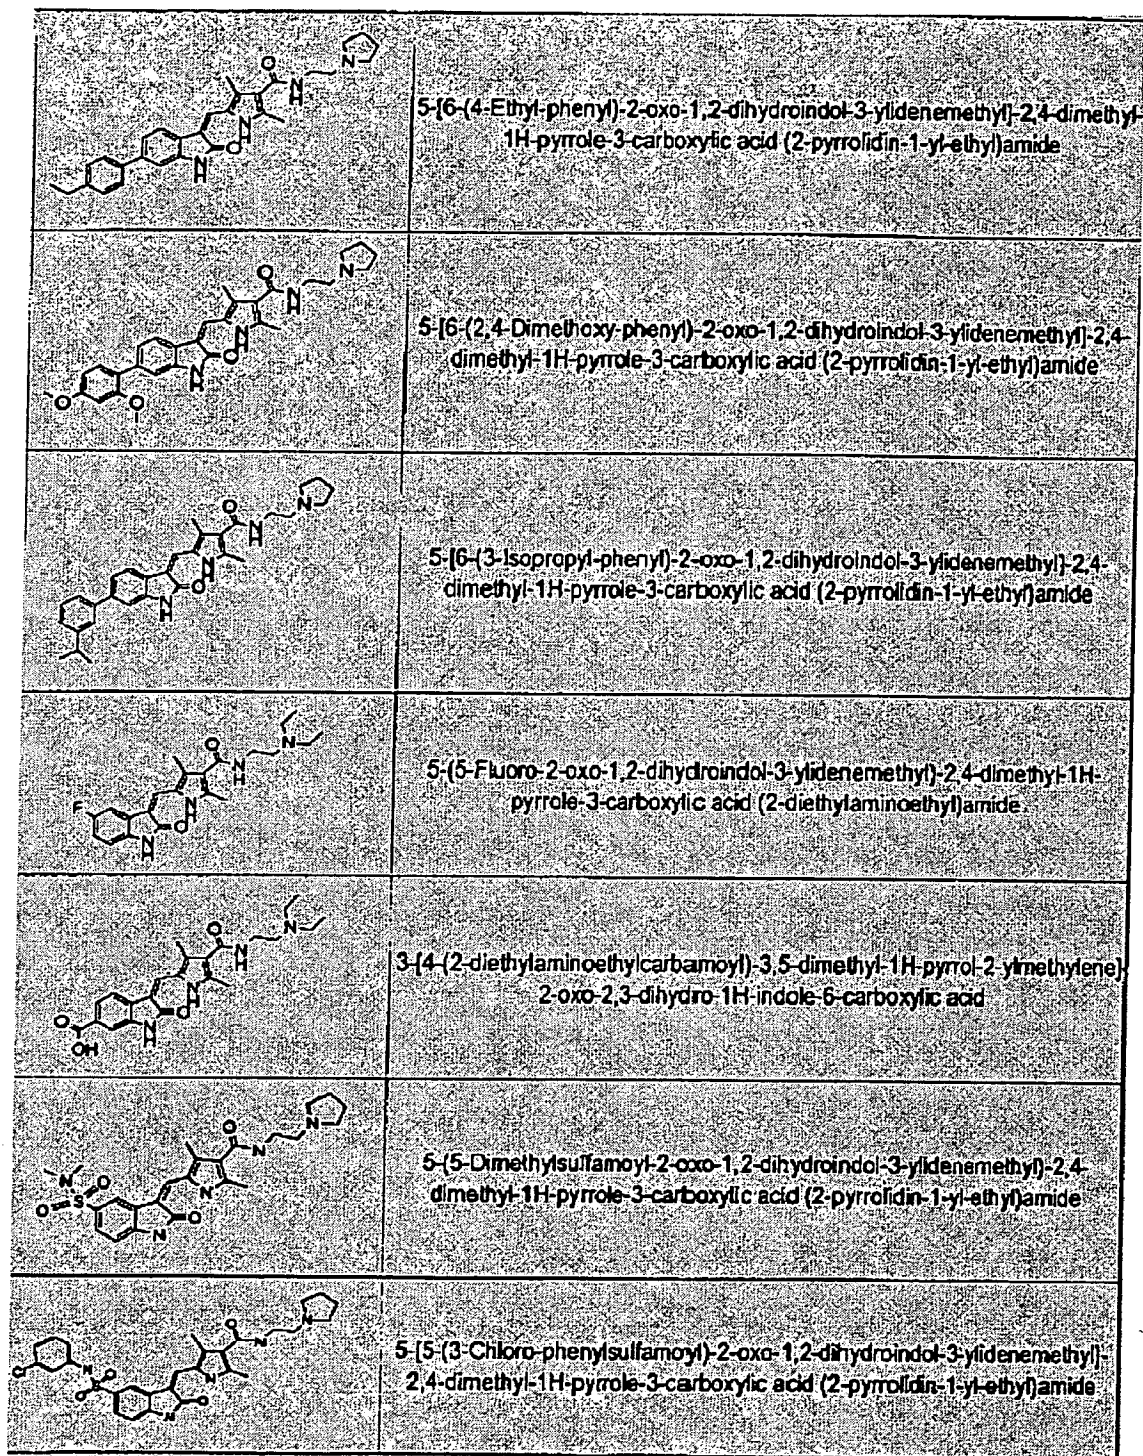 5-[6-(4-Ethyl-phenyl)-2-oxo-1,2-dihydroindol-3-ylidenemethyl]-2,4-dimethyl-
1H-pyrrole-3-carboxylic acid (2-pyrrolidin-1-yl-ethyl)amide
5-[6-(2,4-Dimethoxy-phenyl)-2-oxo-1,2-dihydroindol-3-ylidenemethyl]-2,4-
dimethyl-1H-pyrrole-3-carboxylic acid (2-pyrrolidin-1-yl-ethyl)amide
5-[6-(3-Isopropyl-phenyl)-2-oxo-1,2-dihydroindol-3-ylidenemethyl]-2,4-
dimethyl-1H-pyrrole-3-carboxylic acid (2-pyrrolidin-1-yl-ethyl)amide
F
5-(5-Fluoro-2-oxo-1,2-dihydroindol-3-ylidenemethyl)-2,4-dimethyl-1H-
pyrrole-3-carboxylic acid (2-diethylaminoethyl)amide
OH
3-[4-(2-diethylaminoethylcarbamoyl)-3,5-dimethyl-1H-pyrrol-2-ylmethylene]-
2-oxo-2,3-dihydro-1H-indole-6-carboxylic acid
5-(5-Dimethylsulfamoyl-2-oxo-1,2-dihydroindol-3-ylidenemethyl)-2,4-
dimethyl-1H-pyrrole-3-carboxylic acid (2-pyrrolidin-1-yl-ethyl)amide
5-[5-(3-Chloro-phenylsulfamoyl)-2-oxo-1,2-dihydroindol-3-ylidenemethyl]-
2,4-dimethyl-1H-pyrrole-3-carboxylic acid (2-pyrrolidin-1-yl-ethyl)amide